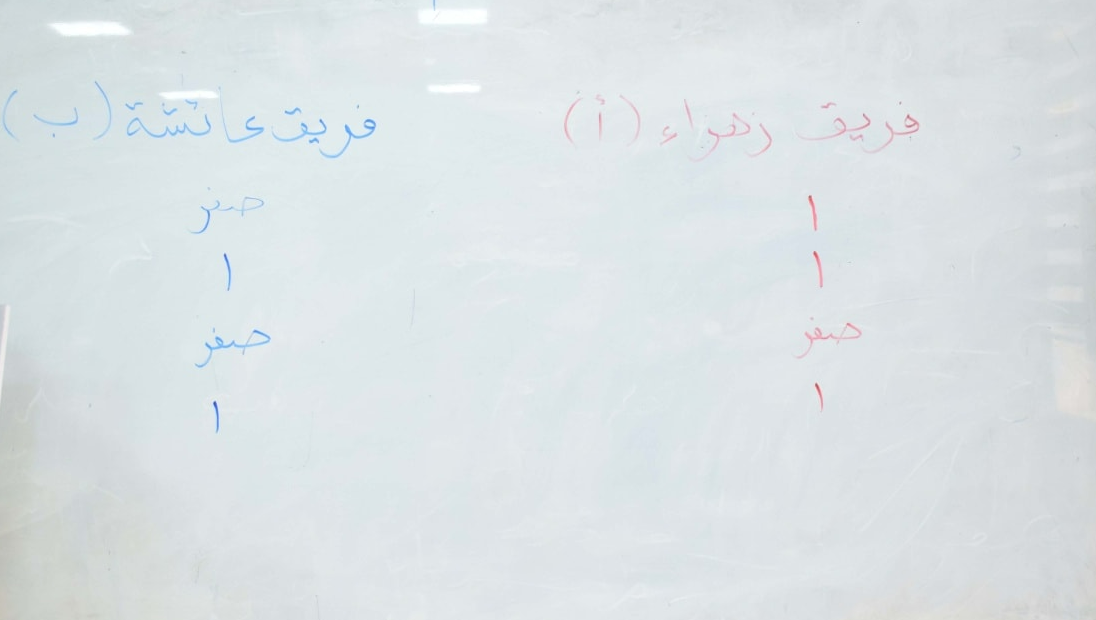 فريق زهراء (أ)
١
١
صفر
١
فريق عائشة (ب)
صفر
١
صفر
١